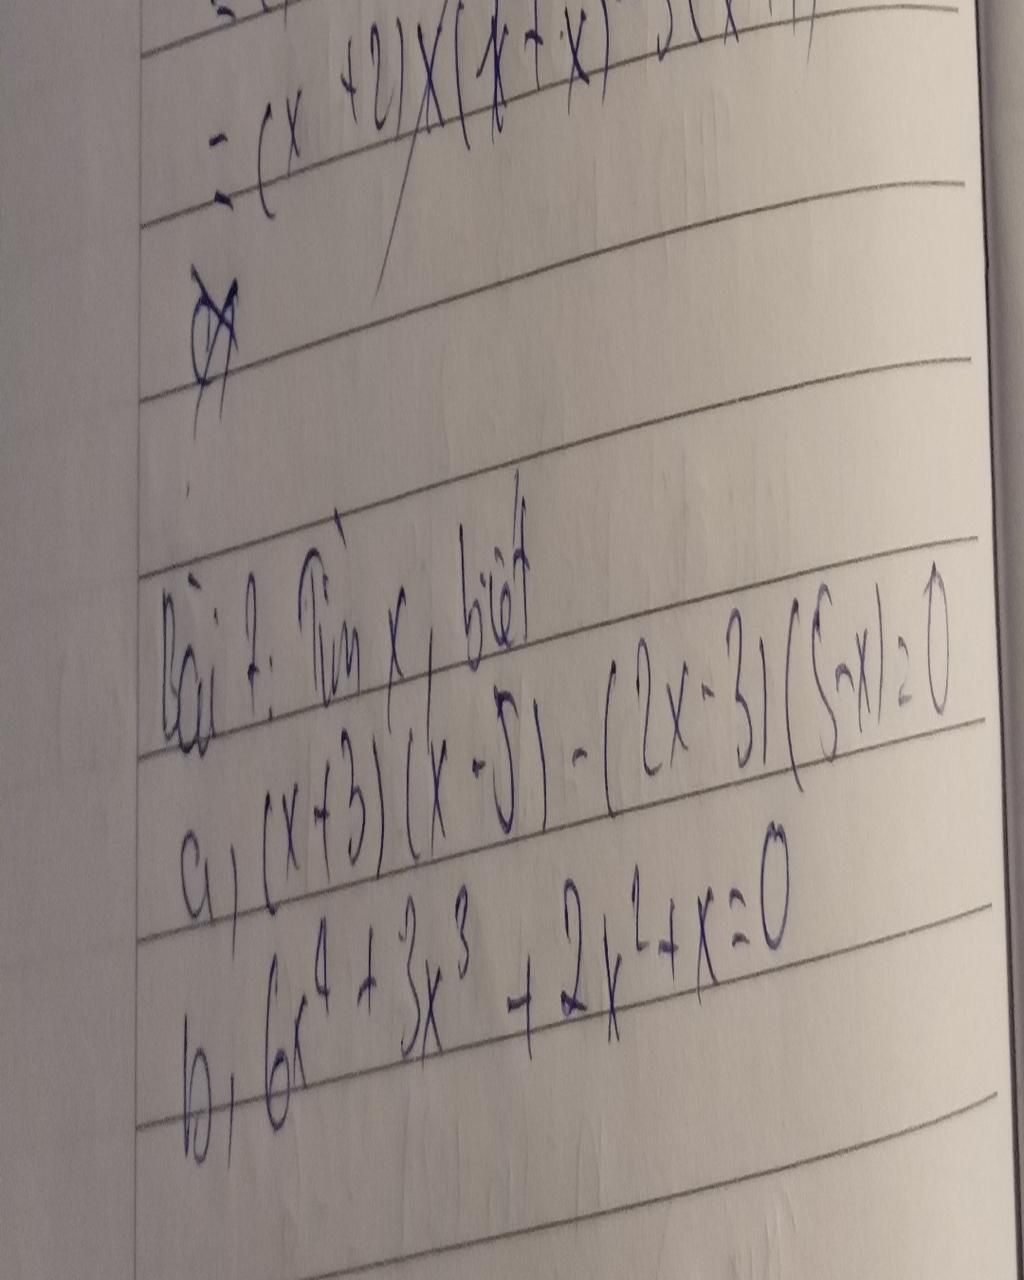 = (x +2)x(x+x)
Bài 7: Tìm x, biết
a, (x+3)(x-5) - (2x-3)(5-x)=0
b, 6x⁴ + 3x³ + 2x² + x = 0